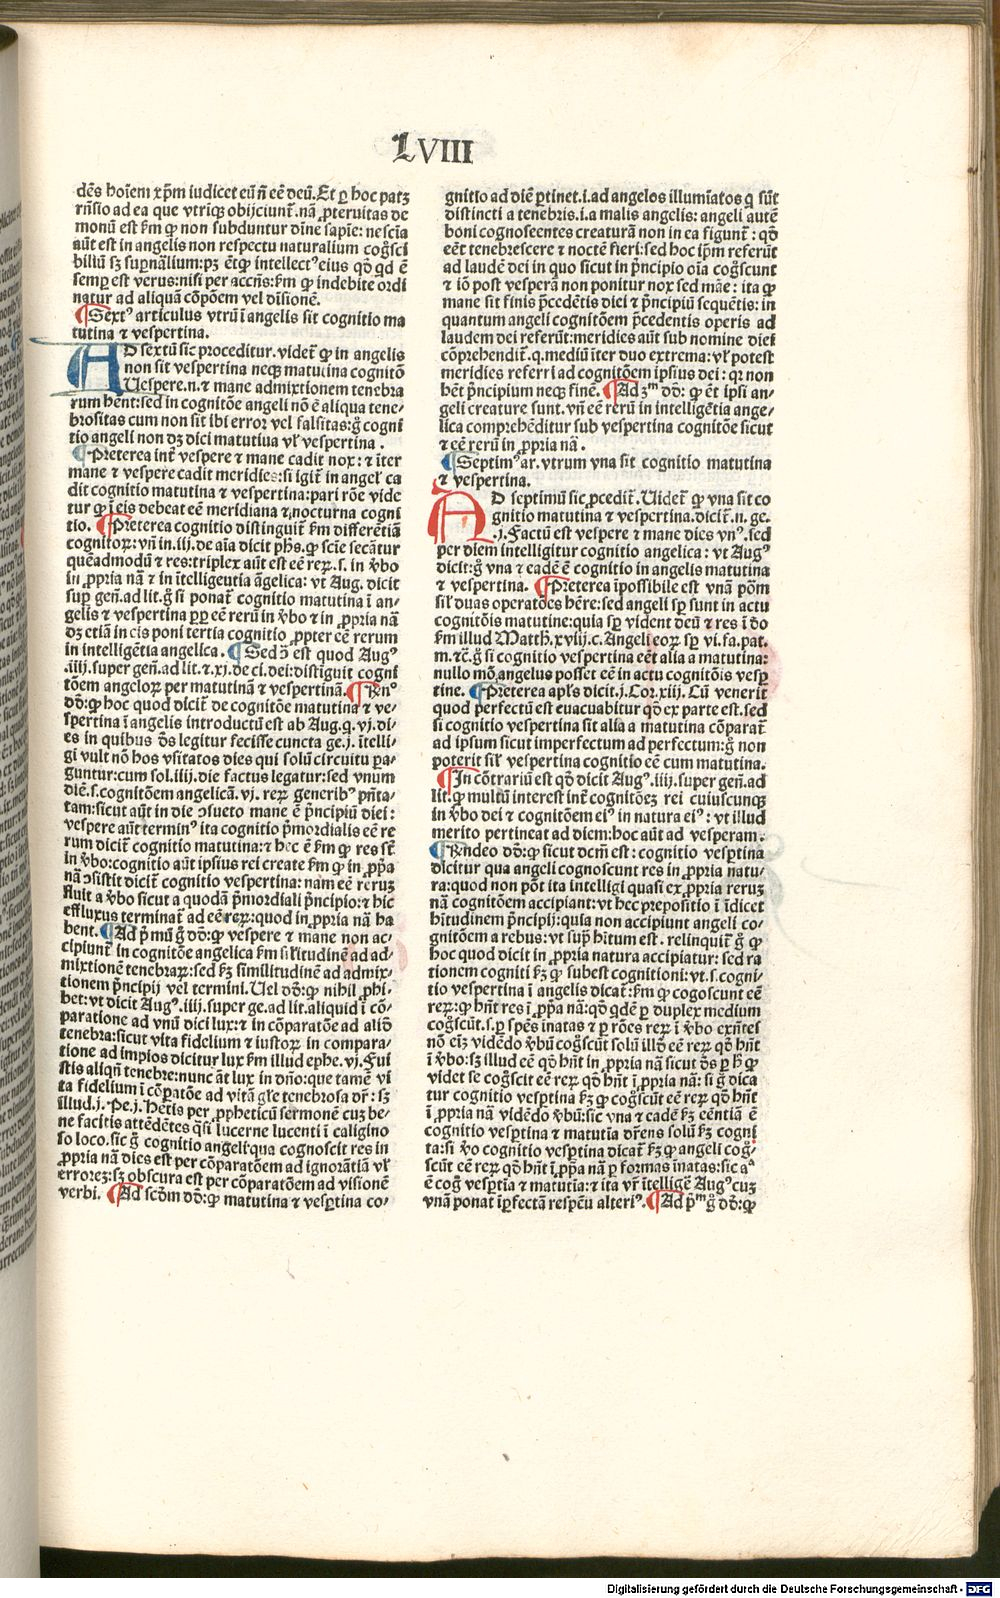 LVIII
dēs hoīem xp̄m iudicet eū n̄ eē deū. Et ꝑ hoc patꝫ
rn̄sio ad ea que vtriqꝫ obijciunt᷑. nā ꝓteruitas de
monū est ẜm ꝙ non subduntur dīne sapīe: nescīa
aūt est in angelis non respectu naturalium cogͦsci
biliū sꝫ sup̄nāliū: pꝫ ētꝙ intellectꝰ eius qd̓ qd ē
semꝑ est verus: nisi per accn̄s: ẜm ꝙ indebite ordi
natur ad aliquā cōpōem vel diuisionē.
¶Sextꝰ articulus vtrū ī angelis sit cognitio ma
tutina ⁊ vespertina.
AD sextū sic proceditur. videt᷑ ꝙ in angelis
non sit vespertina neqꝫ matutina cognitō
Uespere .n. ⁊ mane admixtionem tenebra
rum hn̄t: sed in cognitōe angeli nō ē aliqua tene⸗
brositas cum non sit ibi error vel falsitas: gͦ cogni
tio angeli non dꝫ dici matutina vł vespertina.
¶Preterea int̓ vespere ⁊ mane cadit nox: ⁊ īter
mane ⁊ vespere cadit meridies: si igit᷑ in angeł ca
dit cognitio matutina ⁊ vespertina: pari rōe vide
tur ꝙ ī eis debeat eē meridiana ⁊ nocturna cogni
tio. ¶Preterea cognitio distinguit᷑ ẜm differētiā
cognitoꝝ: vn̄ in .iij. de aīa dicit ph̄s. ꝙ scīe secātur
quēadmodū ⁊ res: triplex aūt est eē reꝝ .s. in v̓bo
in ꝓpria nā ⁊ in ītelligentia āgelica: vt Aug. dicit
suꝑ gen̄. ad lit. gͦ si ponat᷑ cognitio matutina ī an⸗
gelis ⁊ vespertina ꝓpꝫ eē rerū in v̓bo ⁊ in ꝓpria nā
dꝫ etiā in eis poni tertia cognitio ꝓpter eē rerum
in intelligētia angelica. ¶Sed ꝯ̄ est quod Augꝰ
.iiij. super gen̄. ad lit. ⁊ .xj. de ci. dei: distiguit cogni
tōem angeloꝝ per matutinā ⁊ vespertinā. ¶Rn̄º
dd̓: ꝙ hoc quod dicit᷑ de cognitōe matutina ⁊ ve⸗
spertina ī angelis introductū est ab Aug. q. vj. di⸗
es in quibus d̓s legitur fecisse cuncta ge. j. ītelli⸗
gi vult nō hos vsitatos dies qui solū circuitu pa⸗
guntur: cum sol .iiij. die factus legatur: sed vnum
diē .s. cognitōem angelicā .vj. reꝝ generibꝰ pn̄ta⸗
tam: sicut aūt in die ꝯsueto mane ē p̄ncipiū diei:
vespere aūt terminꝰ ita cognitio p̄mordialis eē re
rum dicit᷑ cognitio matutina: ⁊ hec ē ẜm ꝙ res st̄
in v̓bo: cognitio aūt ipsius rei create ẜm ꝙ in ꝓp̄a
nā ꝯsistit dicit᷑ cognitio vespertina: nam eē reruꝫ
fluit a v̓bo sicut a quodā p̄mordiali p̄ncipio: ⁊ hic
effluxus terminat᷑ ad eē reꝝ: quod in ꝓpria nā ha
bent. ¶Ad p̄mū gͦ dd̓: ꝙ vespere ⁊ mane non ac⸗
cipiunt᷑ in cognitōe angelica ẜm sīłitudinē ad ad⸗
mixtionē tenebraꝝ: sed ẜꝫ similitudinē ad admix⸗
tionem p̄ncipij vel termini. Uel dd̓: ꝙ nihil ꝓhi⸗
bet: vt dicit Augꝰ. iiij. super ge. ad lit. aliquid ī cō⸗
paratione ad vnū dici lux: ⁊ in cōparatōe ad aliō
tenebra: sicut vita fidelium ⁊ iustoꝝ in compara⸗
tione ad impios dicitur lux ẜm illud ephe. vj. Fui
stis aliqn̄ tenebre: nunc āt lux in dn̄o: que tamē vi
ta fidelium ī cōparatōe ad vitā gle tenebrosa dr̄: sꝫ
illud .j. Pe. j. Hētis per ꝓpheticū sermonē cuꝫ be⸗
ne facitis attēdētes qͣsi lucerne lucenti ī caligino
so loco. sic gͦ cognitio angeli qua cognoscit res in
ꝓpria nā dies est per cōparatōem ad ignorātiā vł
errorez: sꝫ obscura est per cōparatōem ad visionē
verbi. ¶Ad scd̓m dd̓: ꝙ matutina ⁊ vesꝑtina co⸗
gnitio ad diē ꝑtinet .i. ad angelos illumīatos q̄ sūt
distincti a tenebris .i. a malis angelis: angeli autē
boni cognoscentes creaturā non in ea figunt᷑: qd̓
eēt tenebrescere ⁊ noctē fieri: sed hoc ip̄m referūt
ad laudē dei in quo sicut in p̄ncipio oīa cogͦscunt
⁊ iō post vesperā non ponitur nox sed māe: ita ꝙ
mane sit finis p̄cedētis diei ⁊ p̄ncipiū sequētis: in
quantum angeli cognitōem p̄cedentis operis ad
laudem dei referūt: meridies aūt sub nomine diei
cōprehendit᷑. q. mediū īter duo extrema: vł potest
meridies referri ad cognitōem ipsius dei: qꝛ non
hēt p̄ncipium neqꝫ finē. ¶Ad .3ᵐ dd̓: ꝙ ēt ipsi an⸗
geli creature sunt. vn̄ eē rerū in intelligētia ange⸗
lica comprehēditur sub vespertina cognitōe sicut
⁊ eē rerū in ꝓpria nā.
¶Septimꝰ ar. vtrum vna sit cognitio matutina
⁊ vespertina.
AD septimū sic ꝓcedit᷑. Uidet᷑ ꝙ vna sit co
gnitio matutina ⁊ vespertina. dicit᷑ .n. ge.
.j. Factū est vespere ⁊ mane dies vnꝰ. sed
per diem intelligitur cognitio angelica: vt Augꝰ
dicit: gͦ vna ⁊ eadē ē cognitio in angelis matutina
⁊ vespertina. ¶Preterea īpossibile est vnā pōm
sił duas operatōes hēre: sed angeli sꝑ sunt in actu
cognitōis matutine: quia sꝑ vident deū ⁊ res ī do
ẜm illud Matth. xviij. c. Angeli eoꝝ sꝑ vi. fa. pat.
m. ⁊c̄. gͦ si cognitio vespertina eēt alia a matutina:
nullo mō angelus posset eē in actu cognitōis vesꝑ
tine. ¶Preterea apl̄s dicit .j. Cor. xiij. Cū venerit
quod perfectū est euacuabitur qd̓ ex parte est. sed
si cognitio vespertina sit alia a matutina cōparat᷑
ad ipsum sicut imperfectum ad perfectum: gͦ non
poterit sił vespertina cognitio eē cum matutina.
¶In cōtrariū est qd̓ dicit Augꝰ. iiij. super gen̄. ad
lit. ꝙ multū interest int̓ cognitōeꝫ rei cuiuscunqꝫ
in v̓bo dei ⁊ cognitōem eiꝰ in natura eiꝰ: vt illud
merito pertineat ad diem: hoc aūt ad vesperam.
¶Rn̄deo dd̓: ꝙ sicut dcm̄ est: cognitio vesꝑtina
dicitur qua angeli cognoscunt res in ꝓpria natu⸗
ra: quod non pōt ita intelligi quasi ex ꝓpria reruꝫ
nā cognitōem accipiant: vt hec prepositio ī īdicet
hītudinem p̄ncipij: quia non accipiunt angeli co⸗
gnitōem a rebus: vt supͣ hītum est. relinquit᷑ gͦ ꝙ
hoc quod dicit in ꝓpria natura accipiatur: sed ra
tionem cogniti ẜꝫ ꝙ subest cognitioni: vt .s. cogni⸗
tio vespertina ī angelis dicat᷑: ẜm ꝙ cogͦoscunt eē
reꝝ: ꝙ hn̄t res ī ꝓp̄a nā: qd̓ qdē ꝑ duplex medium
cogͦscūt .s. ꝑ spēs inatas ⁊ ꝑ rōes reꝝ ī v̓bo exn̄tes
nō eīꝫ vidēdo v̓bū cogͦscūt solū illd̓ eē reꝝ qd̓ hn̄t
ī v̓bo: sꝫ illud eē qd̓ hn̄t in ꝓpria nā sicut d̓s ꝑ h̓ ꝙ
videt se cogͦscit eē reꝝ qd̓ hn̄t ī ꝓpria nā: si gͦ dica
tur cognitio vesꝑtina ẜꝫ ꝙ cogͦscūt eē reꝝ qd̓ hn̄t
ī ꝓpria nā vidēdo v̓bū: sic vna ⁊ eadē ẜꝫ eēntiā ē
cognitio vesꝑtina ⁊ matutīa dr̄ens solū ẜꝫ cogni
ta: si v̓o cognitio vesꝑtina dicat᷑ ẜꝫ ꝙ angeli cogͦ⸗
scūt eē reꝝ qd̓ hn̄t ī ꝓp̄a nā ꝑ formas īnatas: sic aᵃ
ē cogͦ vesꝑtīa ⁊ matutīa: ⁊ ita vr̄ ītelligē Augꝰ cuꝫ
vnā ponat īꝑfectā respēu alteriꝰ. ¶Ad p̄ᵐ gͦ dd̓: ꝙ
Digitalisierung gefördert durch die Deutsche Forschungsgemeinschaft - DFG